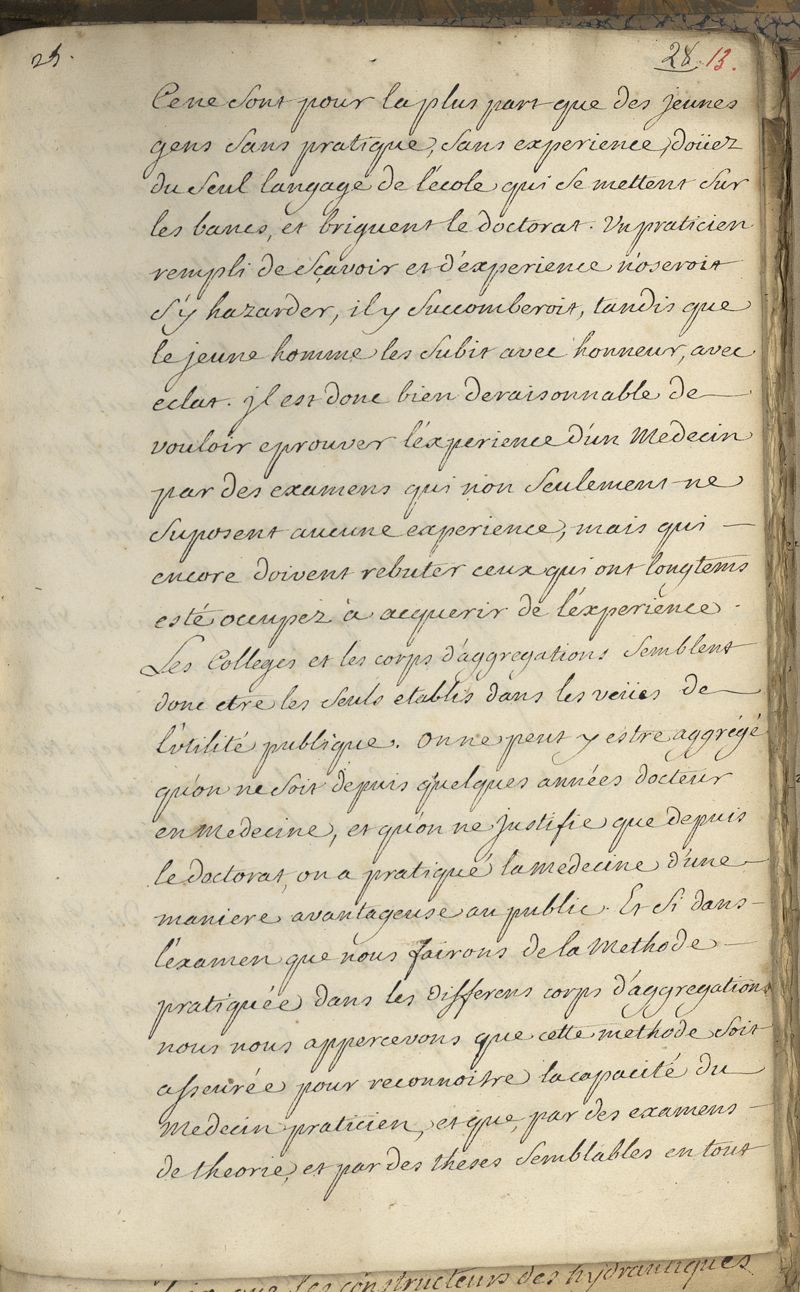 25.
28 13.
Ce ne sont pour la plus part que des jeunes
gens sans pratique, sans experience, doüez
du seul langage de l'école qui se mettent sur
les bancs, et briguent le doctorat. Un praticien
rempli de sçavoir et d'experience n'oseroit
s'y hazarder, il y succomberoit, tandis que
le jeune homme les subit avec honneur, avec
eclat. il est donc bien deraisonnable de
vouloir eprouver l'éxperience d'un Medecin
par des examens qui non seulement ne
suposent aucune experience, mais qui
encore doivent rebuter ceux qui ont longtems
esté occupez à acquerir de l'éxperience.
Les Colleges et les corps d'aggregations semblent
donc etre les seuls etablis dans les veües de
l'utilité publique. On ne peut y estre aggrégé
qu'on ne soit depuis quelques années docteur
en Medecine, et qu'on ne justifie que depuis
le doctorat, on a pratiqué la medecine d'une
maniere avantageuse au public. Et si dans
l'éxamen que nous fairons de la Methode
pratiquée dans les differens corps d'aggregations
nous nous appercevons que cette methode soit
asseurée pour reconnoitre la capacité du
Medecin praticien, et que, par des examens
de theorie, et par des theses semblables en tout
que les constructeurs des hydrauliques